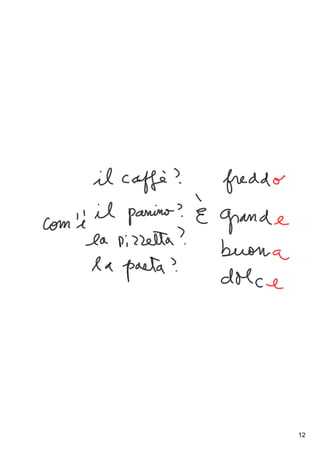 il caffè? freddo
com'è il panino? È grande
la pizzetta? buona
la pasta? dolce
12